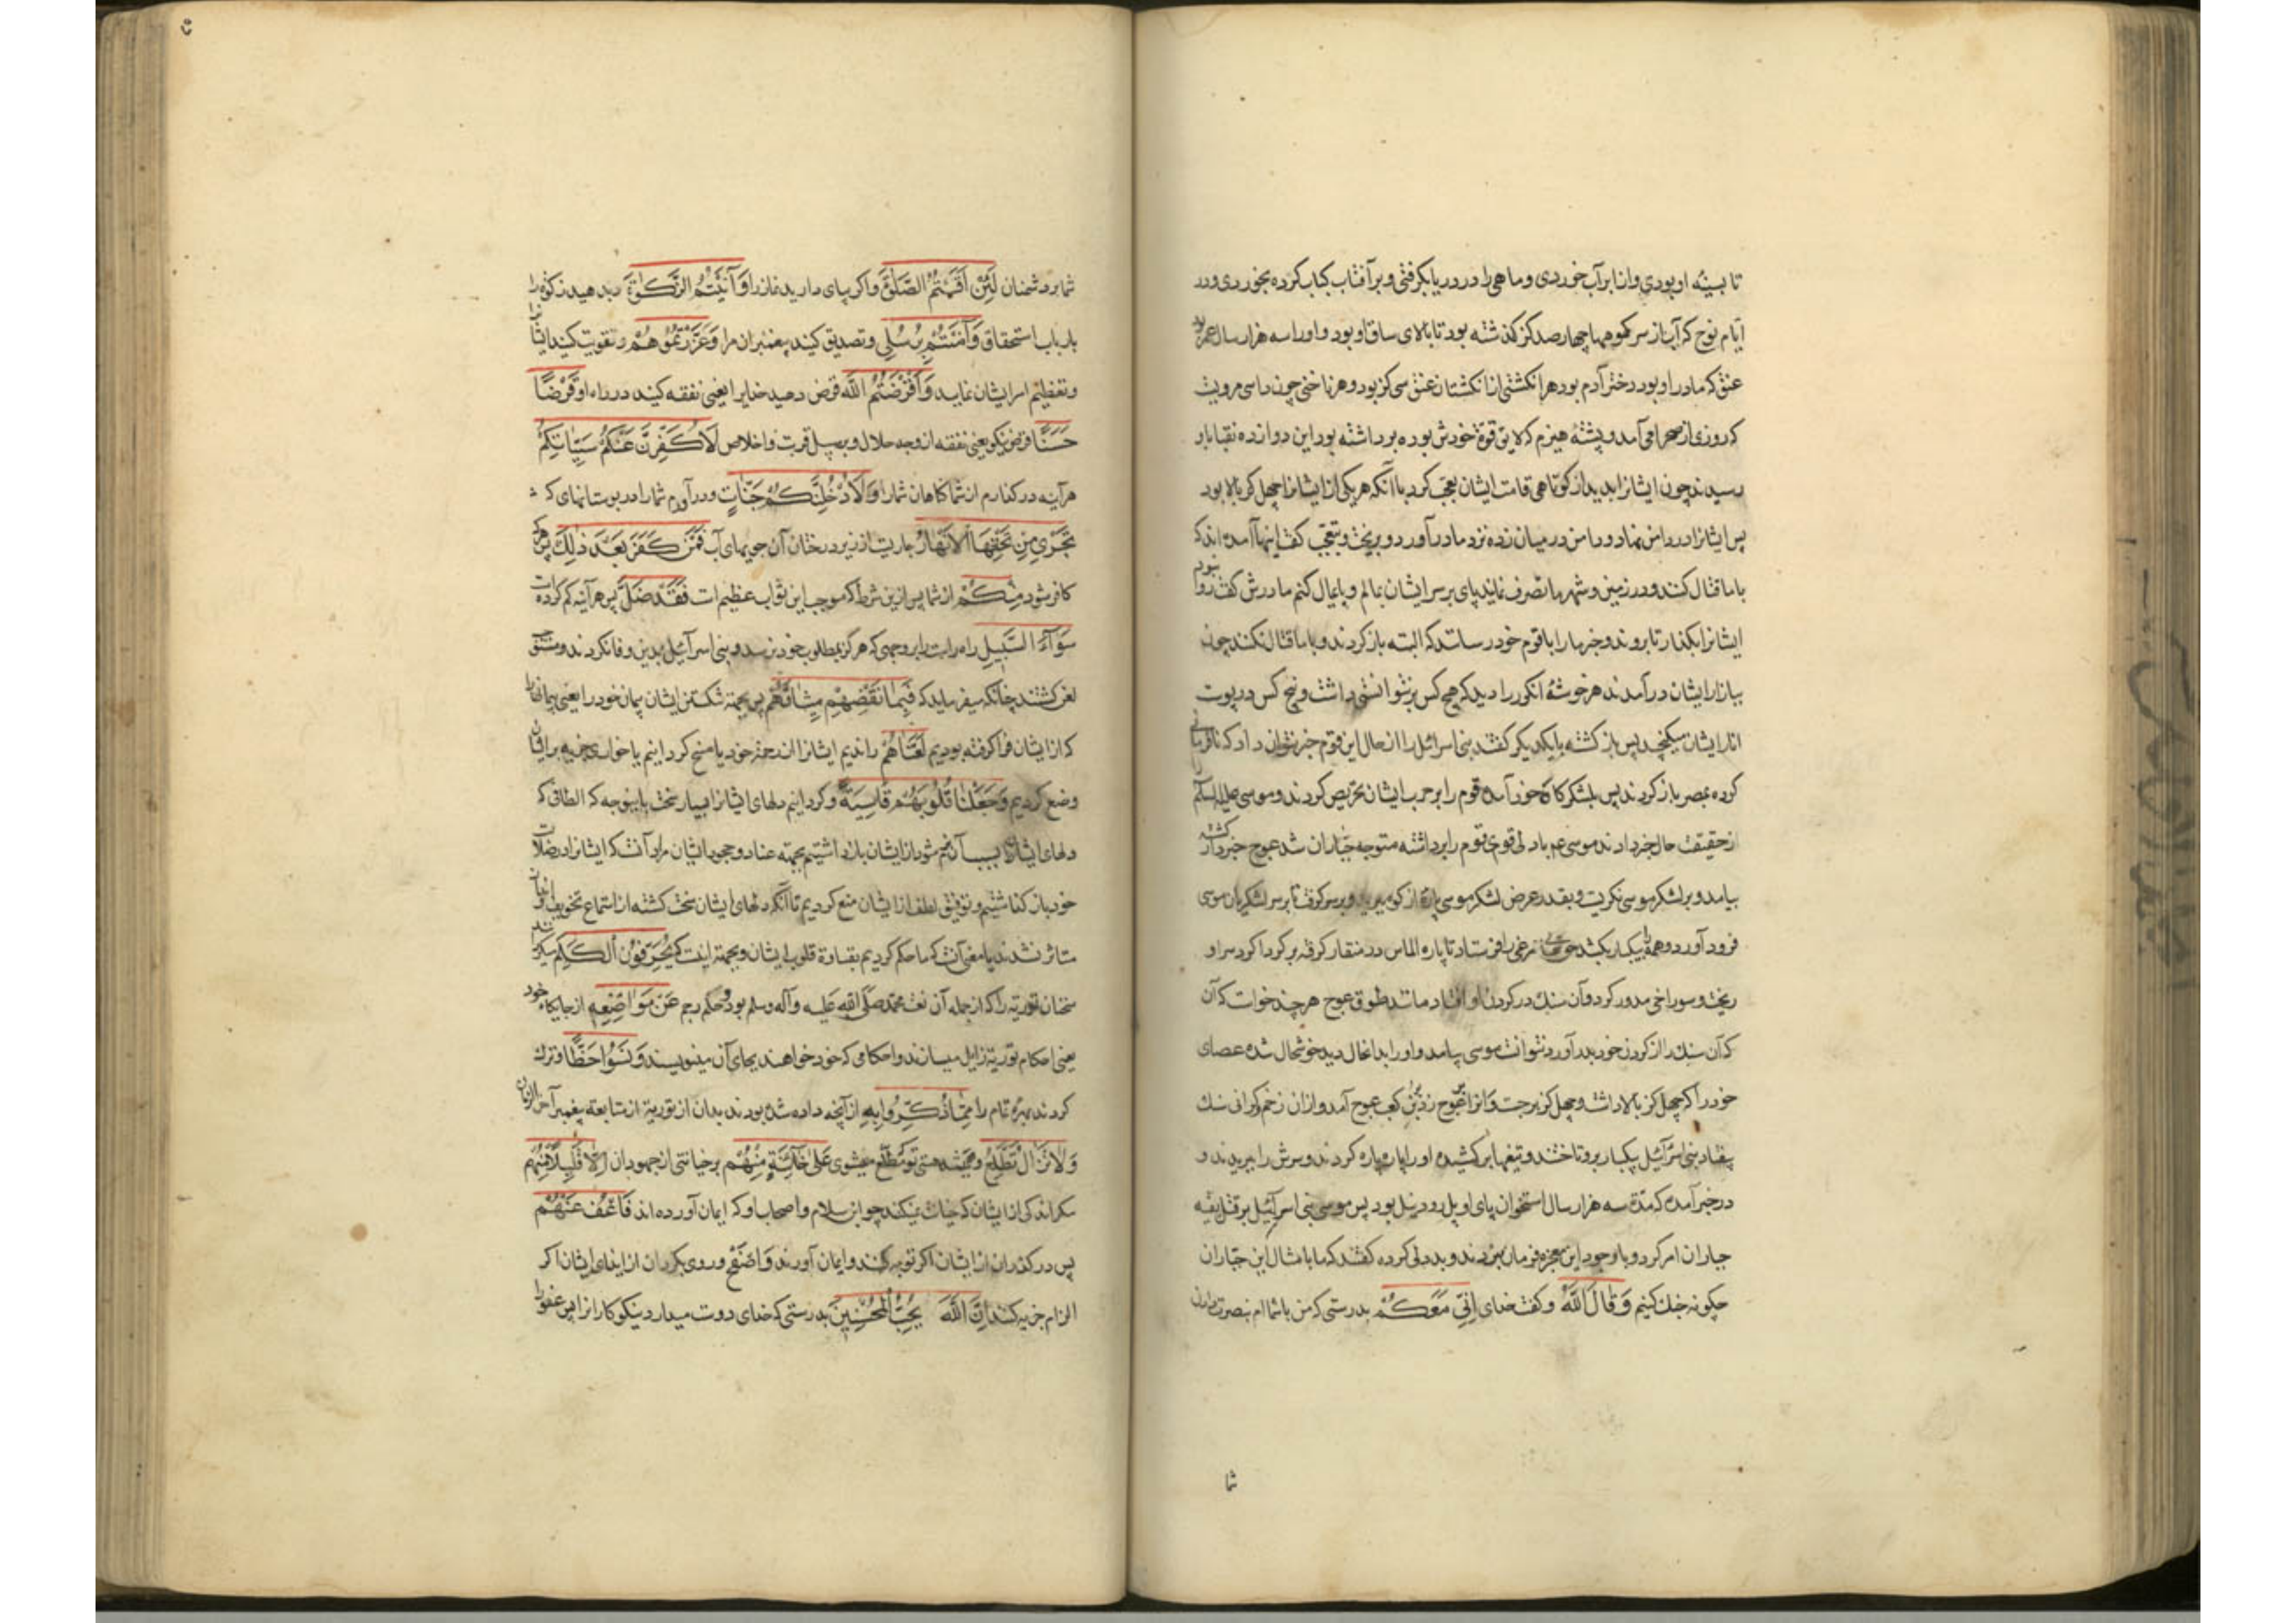 تا بسینه او بودی و انا برآب خوردی و ماهی را در دریا بکرفتی و برآفتاب کباب کرده بخوردی و در
ایام نوح که آب از سر کوهها چهارصد کز کذشته بود تا بالای ساق او بود و او را سه هزار سال عمر بود
عنق که مادر او بود دختر آدم بود هر انکشتی از انکشتان عنق سی کز بود و هر ناخنی چون داسی مرویست
که روزی از صحرا می آمد و پشتهٔ هیزم که لایق قوة خودش بود بر داشته بود این دوازده نقبا باو
رسیدند چون ایشانرا بدید از کوتاهی قامت ایشان تعجب کرد باآنکه هر یکی از ایشانرا چهل کز بالا بود
پس ایشانرا در دامن نهاد و دامن در میان زده نزد مادر آورد و بریخت و بتعجب کفت اینها آمده اند که
با ما قتال کنند و در زمین و شهرها تصرف نمایند پای بر سر ایشان بمالم و پایمال کنم مادرش کفت روا نبود
ایشانرا بکذار تا بروند و خبر ما را باقوم خود رسانند که البته باز کردند و با ما قتال نکنند چون
ببازار ایشان درآمدند هر خوشهٔ انکور را دیدند که هیچ کس برنتوانستی داشت و پنج کس در پوست
انار ایشان میکنجید پس باز کشته بایکدیکر کفتند بنی اسرائیل را از حال این قوم خبر نتوان داد که نافرمانی
کرده بمصر باز کردند پس بلشکرکاه خود آمده قوم را بر حرب ایشان تحریص کردند و موسی علیه السلام
از حقیقت حال خبر دادند موسی عم با دلی قوی قوم را برداشته متوجه جباران شد عوج خبردار کشته
بیامد و بر لشکر موسی نکریست و بقدر عرض لشکر موسی پارهٔ از کوه ببرید و بر سر کرفت تا بر سر لشکریان موسی
فرود آورد و همه را بیکبار بکشد حق تعالی مرغی را فرستاد تا پاره الماس در منقار کرفته بر کرداکرد سر او
ریخت و سوراخی مدور کرد و آن سنک در کردن او افتاد مانند طوق عوج هر چند خواست که آن
که آن سنک را از کردن خود بدر آورد نتوانست موسی بیامد و او را بدانحال دید خوشحال شده عصای
خود را که چهل کز بالا داشت و چهل کز برجست و آنرا بر عوج زد بر کعب عوج آمد و از آن زخم و کرانی سنک
بیفتاد بنی اسرآئیل بیکبار برو تاختند و تیغها برکشیده او را پاره پاره کردند و سرش را ببریدند و
در خبر آمده که مدة سه هزار سال استخوان پای او پل رود نیل بود پس موسی بنی اسرآئیل را بر قتل بقیه
جباران امر کرد و با وجود این معجزه فرمان نبردند و بددلی کرده کفتند که ما با مثال این جباران
چکونه جنک کنیم وَقَالَ اللّٰهُ و کفت خدای اِنِّی مَعَکُمْ بدرستی که من با شما ام بنصرت دادن
شما
شما بر دشمنان لَئِنْ اَقَمْتُمُ الصَّلٰوةَ و اکر بپای دارید نماز را وَآتَیْتُمُ الزَّکٰوةَ و بدهید زکوة را
بارباب استحقاق وَآمَنْتُمْ بِرُسُلِی و تصدیق کنید پیغمبران مرا وَعَزَّرْتُمُوهُمْ و تقویت کنید ایشانرا
و تعظیم امر ایشان نمایید وَاَقْرَضْتُمُ اللّٰهَ قرض دهید خدایرا یعنی نفقه کنید در راه او قَرْضًا
حَسَنًا قرض نیکو یعنی نفقه از وجه حلال و بر سبیل قربت و اخلاص لَاُکَفِّرَنَّ عَنْکُمْ سَیِّاٰتِکُمْ
هرآینه درکذارم از شما کناهان شما را وَلَاُدْخِلَنَّکُمْ جَنَّاتٍ و درآورم شما را در بوستانهای که
تَجْرِی مِنْ تَحْتِهَا الْاَنْهَارُ جاریست از زیر درختان آن جویهای آب فَمَنْ کَفَرَ بَعْدَ ذٰلِکَ پس هر که
کافر شود مِنْکُمْ از شما پس ازین شرط که موجب این ثواب عظیم است فَقَدْ ضَلَّ پس هرآینه کم کرده است
سَوَآءَ السَّبِیلِ راه راست را بر وجهی که هرکز بمطلوب خود نرسد و بنی اسرآئیل بدین وفا نکردند و مستحق
لعن کشتند چنانکه میفرماید که فَبِمَا نَقْضِهِمْ مِیثَاقَهُمْ پس بجهة شکستن ایشان پیمان خود را یعنی پیمانها را
که از ایشان فرا کرفته بودیم لَعَنَّاهُمْ راندیم ایشانرا از رحمة خود یا مسخ کردانیم یا خواری جزیه بر ایشان
وضع کردیم وَجَعَلْنَا قُلُوبَهُمْ قَاسِیَةً و کردانیم دلهای ایشانرا بسیار سخت باینوجه که الطافی که
دلهای ایشان بسبب آن نرم شود از ایشان باز داشتیم بجهته عناد و جحود ایشان مراد آنست که ایشانرا در ضلالت
خود باز کذاشتیم و توفیق لطف از ایشان منع کردیم تا آنکه دلهای ایشان سخت کشته از استماع تخویف و انذار
متاثر نشدند یا معنی آنست که ما حکم کردیم بقساوة قلوب ایشان و بجهته اینست که یُحَرِّفُونَ الْکَلِمَ
سخنان توریة را که از جمله آن نعت محمد صلی الله علیه وآله وسلم بود و حکم رجم عَنْ مَوَاضِعِهِ از جایکاه خود
یعنی احکام توریة زایل میسازند و احکامی که خود خواهند بجای آن مینویسند وَنَسُوا حَظًّا و ترک
کردند بهرهٔ تمام را مِمَّا ذُکِّرُوا بِهِ از آنچه داده شده بودند بدان از توریة از متابعة پیغمبر آخر الزمان
وَلَا تَزَالُ تَطَّلِعُ و همیشه هستی تو که مطلع میشوی عَلٰی خَآئِنَةٍ مِنْهُمْ بر خیانتی از جهودان اِلَّا قَلِیلًا مِنْهُمْ
مکر اندکی از ایشان که خیانت نمیکنند چو ابن سلام و اصحاب او که ایمان آورده اند فَاعْفُ عَنْهُمْ
پس درکذران از ایشان اکر توبه کنند و ایمان آورند وَاصْفَحْ و روی بکردان از ایذای ایشان اکر
الزام جزیه کنند اِنَّ اللّٰهَ یُحِبُّ الْمُحْسِنِینَ بدرستی که خدای دوست میدارد نیکوکارانرا پس عفو را